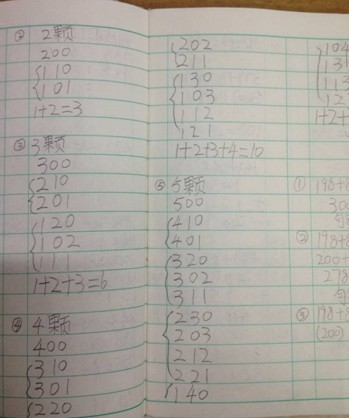 ② 2颗
200
110
101
1+2=3
③ 3颗
300
210
201
120
102
111
1+2+3=6
④ 4颗
400
310
301
220
202
211
130
103
112
121
1+2+3+4=10
⑤ 5颗
500
410
401
320
302
311
230
203
212
221
140
104
131
113
1+2+
① 198+
300
② 198+
200+
278
③ 198+
(200)